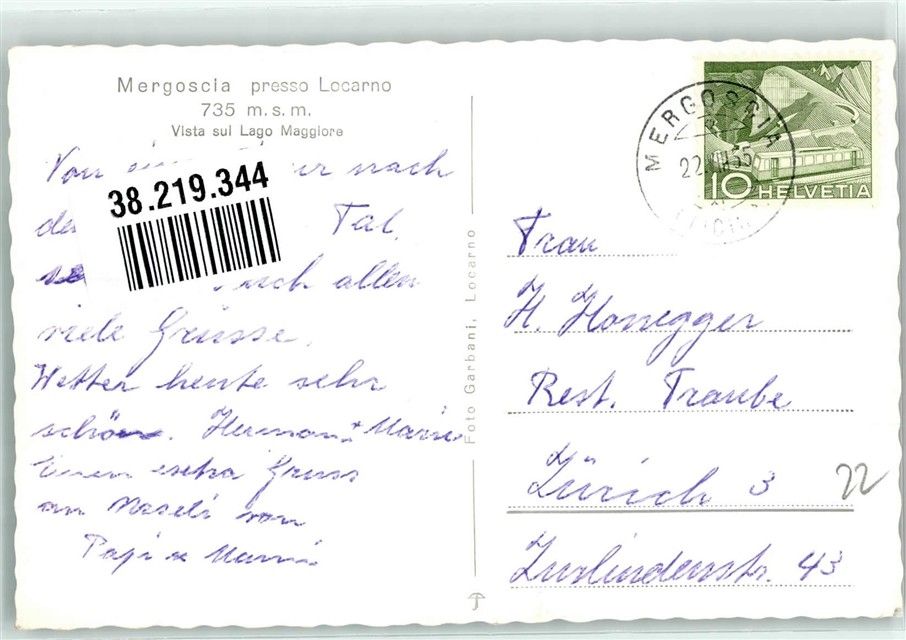 Mergoscia presso Locarno
735 m.s.m.
Vista sul Lago Maggiore
Von nach
Tal.
allen
viele Grüsse.
Wetter heute sehr
schön. Hermann + Marie
Einen extra Gruss
an von
Papi + Mami
38.219.344
Foto Garbani, Locarno
MERGOSCIA
22. 55
10 HELVETIA
Frau
H. Honegger
Rest. Traube
Zürich 3
22
Zurlindenstr. 43